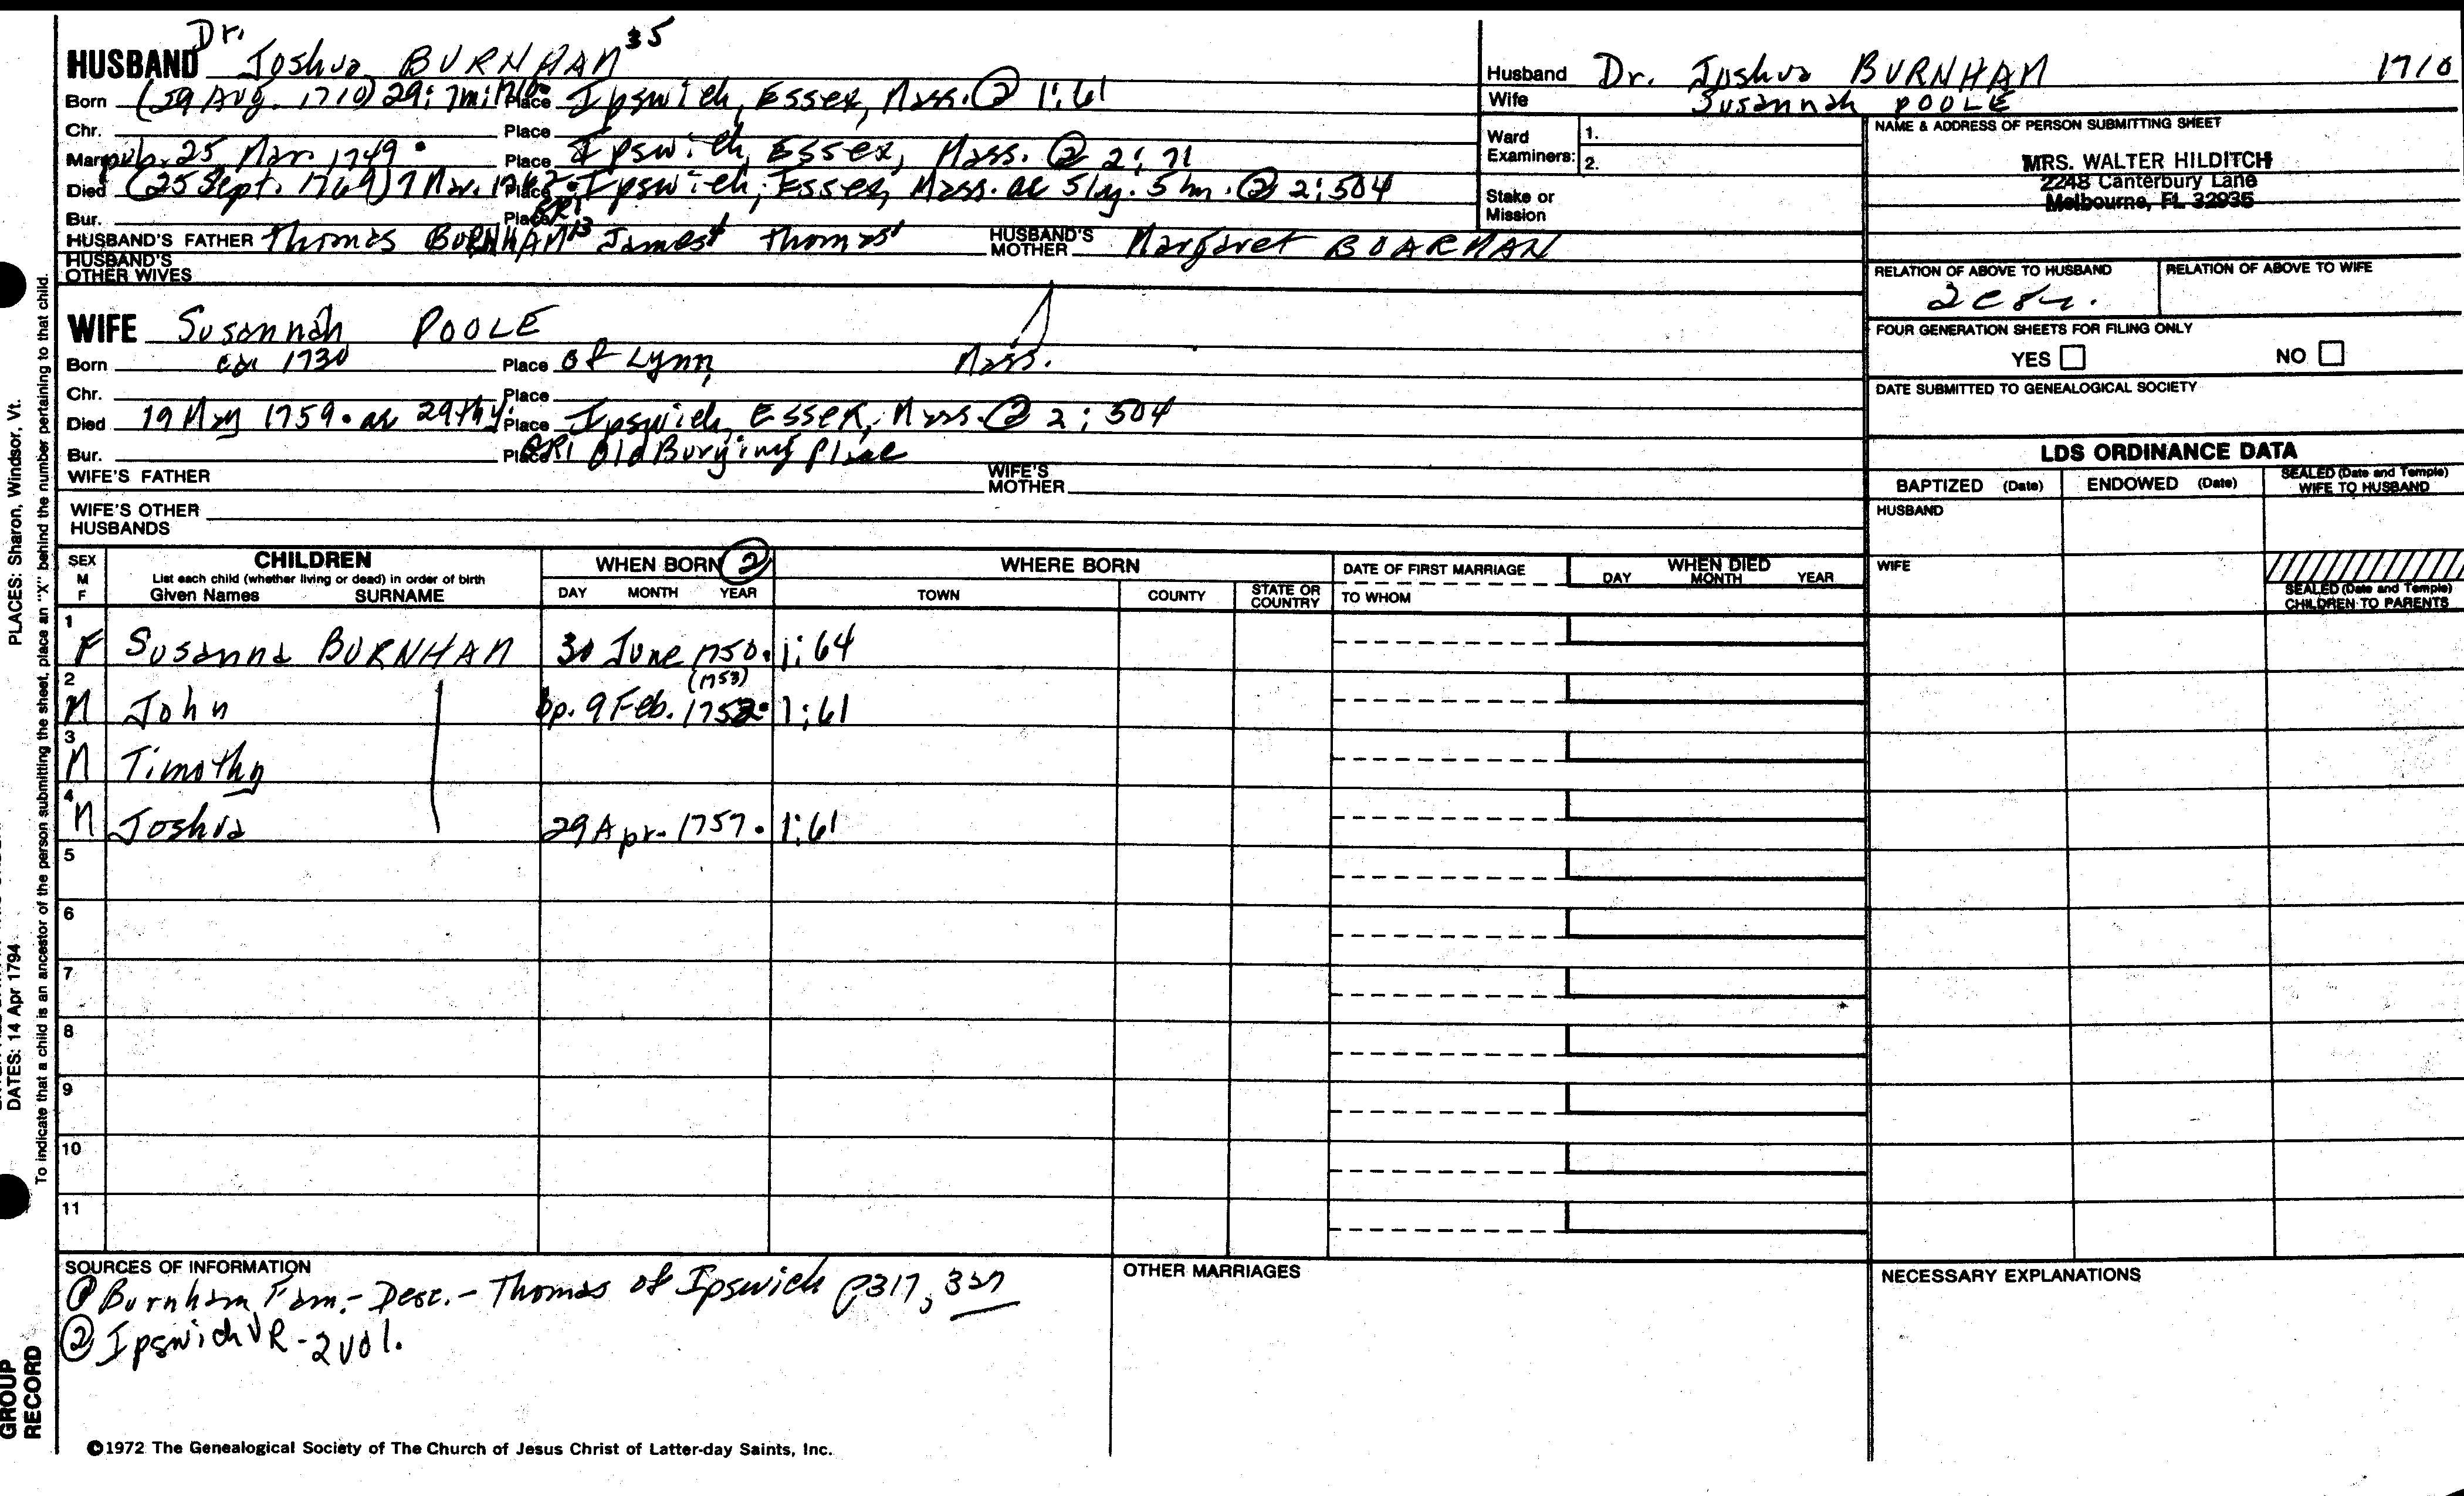 Dr.
HUSBAND Joshua BURNHAM 35
Born (29 Aug. 1710) 29: 7m: 1710. Place Ipswich, Essex, Mass. ② 1:61
Chr. Place
Marr. pub. 25 Mar. 1749. Place Ipswich, Essex, Mass. ② 2:71
Died (25 Sept. 1769) 7 Mar. Place Ipswich, Essex, Mass. ae 51y. 5m. ② 2:504
Bur. Place GR1
HUSBAND'S FATHER Thomas BURNHAM James Thomas HUSBAND'S MOTHER Margaret BOARMAN
HUSBAND'S OTHER WIVES
WIFE Susannah POOLE
Born ca 1730 Place of Lynn, Mass.
Chr. Place
Died 19 May 1759. ae 29thy. Place Ipswich, Essex, Mass. ② 2:504
Bur. Place GR1 Old Burying Place
WIFE'S FATHER WIFE'S MOTHER
WIFE'S OTHER HUSBANDS
Husband Dr. Joshua BURNHAM 1710
Wife Susannah POOLE
Ward Examiners: 1.
2.
Stake or Mission
NAME & ADDRESS OF PERSON SUBMITTING SHEET
MRS. WALTER HILDITCH
2248 Canterbury Lane
Melbourne, FL 32935
RELATION OF ABOVE TO HUSBAND RELATION OF ABOVE TO WIFE
FOUR GENERATION SHEETS FOR FILING ONLY
YES NO
DATE SUBMITTED TO GENEALOGICAL SOCIETY
LDS ORDINANCE DATA
BAPTIZED (Date) ENDOWED (Date) SEALED (Date and Temple) WIFE TO HUSBAND
HUSBAND
WIFE
SEALED (Date and Temple)
CHILDREN TO PARENTS
SEX M F CHILDREN WHEN BORN ② WHERE BORN DATE OF FIRST MARRIAGE WHEN DIED
List each child (whether living or dead) in order of birth
Given Names SURNAME DAY MONTH YEAR TOWN COUNTY STATE OR COUNTRY TO WHOM DAY MONTH YEAR
1 F Susanna BURNHAM 30 June 1750. 1:64
(1753)
2 M John bp. 9 Feb. 1752. 1:61
3 M Timothy
4 M Joshua 29 Apr. 1757. 1:61
5
6
7
8
9
10
11
SOURCES OF INFORMATION
① Burnham Fam.- Desc.- Thomas of Ipswich p317,
② Ipswich VR - 2 vol.
OTHER MARRIAGES
NECESSARY EXPLANATIONS
©1972 The Genealogical Society of The Church of Jesus Christ of Latter-day Saints, Inc.
PLACES: Sharon, Windsor, Vt.
DATES: 14 Apr 1794
To indicate that a child is an ancestor of the person submitting the sheet, place an "X" behind the number pertaining to that child.
GROUP
RECORD